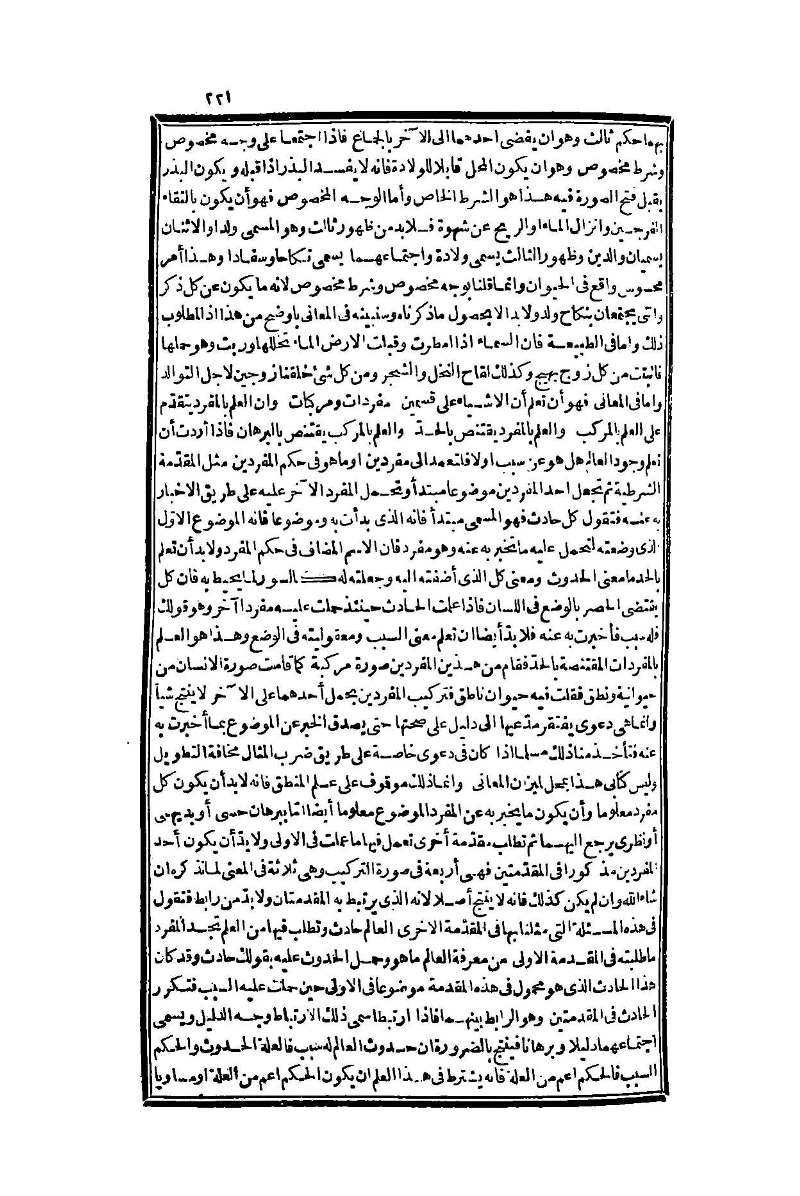 ٢٢١
بهما حكم ثالث وهو ان يفضى احدهما الى الآخر بالجماع فاذا اجتمعا على وجه مخصوص
وشرط مخصوص وهو ان يكون المحل قابلا للولادة فانه لا يفسد البذر اذا قبله و يكون البذر
يقبل فتح الصورة فيه هذا هو الشرط الخاص وأما الوجه المخصوص فهو أن يكون بالتقاء
الفرجين وانزال الماء او الريح عن شهوة فلابد من ظهور ثالث وهو المسمى ولدا والاثنان
يسميان والدين وظهور الثالث يسمى ولادة واجتماعهما يسمى نكاحا وسفادا وهذا أمر
محسوس واقع فى الحيوان وانما قلنا بوجه مخصوص وشرط مخصوص لانه ما يكون عن كل ذكر
وانثى يجتمعان بنكاح ولد ولابد الا بحصول ماذكرناه وسنبينه فى المعانى باوضح من هذا اذ المطلوب
ذلك واما فى الطبيعة فان السماء اذا امطرت وقبلت الارض الماء تخللها وربت وهو حملها
فانبتت من كل زوج بهيج وكذلك لقاح النخل والشجر ومن كل شئ خلقنا زوجين لاجل التوالد
واما فى المعانى فهو أن تعلم أن الاشياء على قسمين مفردات ومركبات وان العلم بالمفرد يتقدم
على العلم بالمركب والعلم بالمفرد يقتنص بالحد والعلم بالمركب يقتنص بالبرهان فاذا أردت أن
تعلم وجود العالم هل هو عن سبب اولا فلتعمد الى مفردين او ما هو فى حكم المفردين مثل المقدمة
الشرطية ثم تجعل احد المفردين موضوعا مبتدأ وتحمل المفرد الآخر عليه على طريق الاخبار
به عنه فتقول كل حادث فهو المسمى مبتدأ فانه الذى بدأت به وموضوعا فانه الموضوع الاول
الذى وضعته لتحمل عليه ما تخبر به عنه وهو مفرد فان الاسم المضاف فى حكم المفرد ولابد أن تعلم
بالحد ما معنى الحدوث ومعنى كل الذى أضفته اليه وجعلته له كالسور لما يحيط به فان كل
يقتضى الحصر بالوضع فى اللسان فاذا علمت الحادث حينئذ حملت عليه مفردا آخر وهو قولك
فله سبب فأخبرت به عنه فلا بد أيضا ان تعلم معنى السبب ومعقوليته فى الوضع وهذا هو العلم
بالمفردات المقتنصة بالحد فقام من هذين المفردين صورة مركبة كما قامت صورة الانسان من
حيوانية ونطق فقلت فيه حيوان ناطق فتركيب المفردين بحمل أحدهما على الآخر لا ينتج شيأ
وانما هى دعوى يفتقر مدعيها الى دليل على صحتها حتى يصدق الخبر عن الموضوع بما أخبرت به
عنه فنأخذ منا ذلك مسلما اذا كان فى دعوى خاصة على طريق ضرب المثال مخافة التطويل
وليس كتابى هذا بمحل لميزان المعانى وانما ذلك موقوف على علم المنطق فانه لابد أن يكون كل
مفرد معلوما وأن يكون ما يخبر به عن المفرد الموضوع معلوما أيضا اما ببرهان حسى أو بديهى
أو نظرى يرجع اليهما ثم تطلب مقدمة أخرى تعمل فيها ما عملت فى الاولى ولابد أن يكون أحد
المفردين مذكورا فى المقدمتين فهى أربعة فى صورة التركيب وهى ثلاثة فى المعنى لما نذكره ان
شاء الله وان لم يكن كذلك فانه لا ينتج أصلا لانه الذى يرتبط به المقدمتان ولابد من رابط فتقول
فى هذه المسئلة التى مثلنا بها فى المقدمة الاخرى العالم حادث وتطلب فيها من العلم بحد المفرد
ما طلبته فى المقدمة الاولى من معرفة العالم ما هو وحمل الحدوث عليه بقولك حادث وقد كان
هذا الحادث الذى هو محمول فى هذه المقدمة موضوعا فى الاولى حين حملت عليه السبب فتكرر
الحادث فى المقدمتين وهو الرابط بينهما فاذا ارتبطا سمى ذلك الارتباط وجه الدليل ويسمى
اجتماعهما دليلا وبرهانا فينتج بالضرورة ان حدوث العالم له سبب فالعلة الحدوث والحكم
السبب فالحكم اعم من العلة فانه يشترط فى هذا العلم ان يكون الحكم اعم من العلة او مساويا